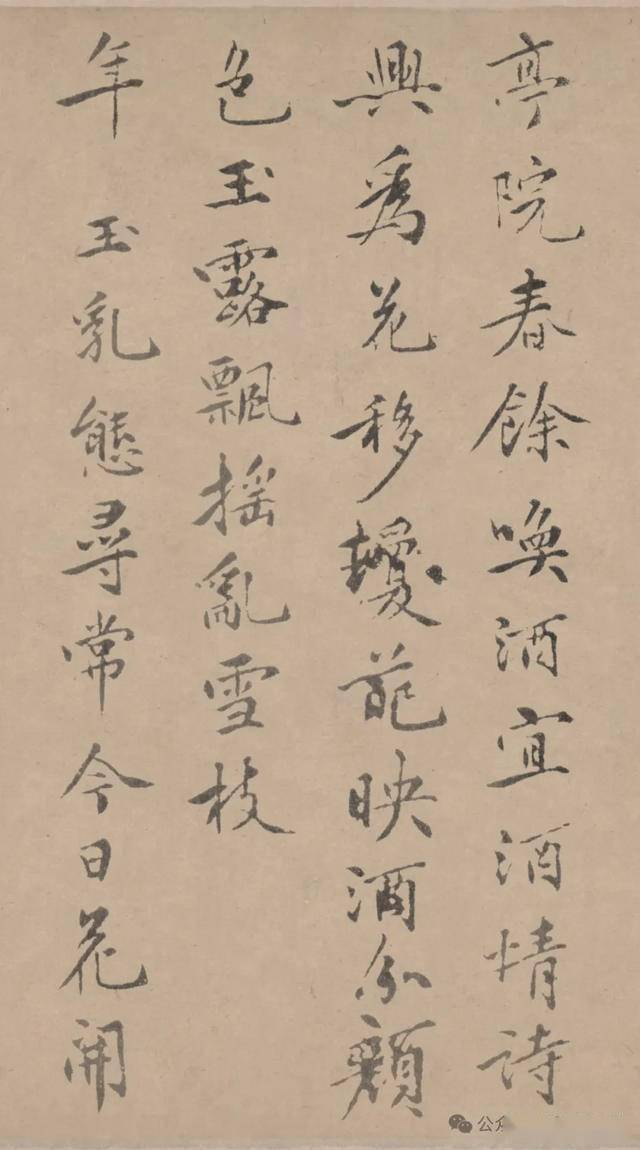 亭院春餘喚酒宜酒情詩
興爲花移攙葩映酒分顏
色玉露飄摇亂雪枝
年 玉乳態尋常今日花開
公众